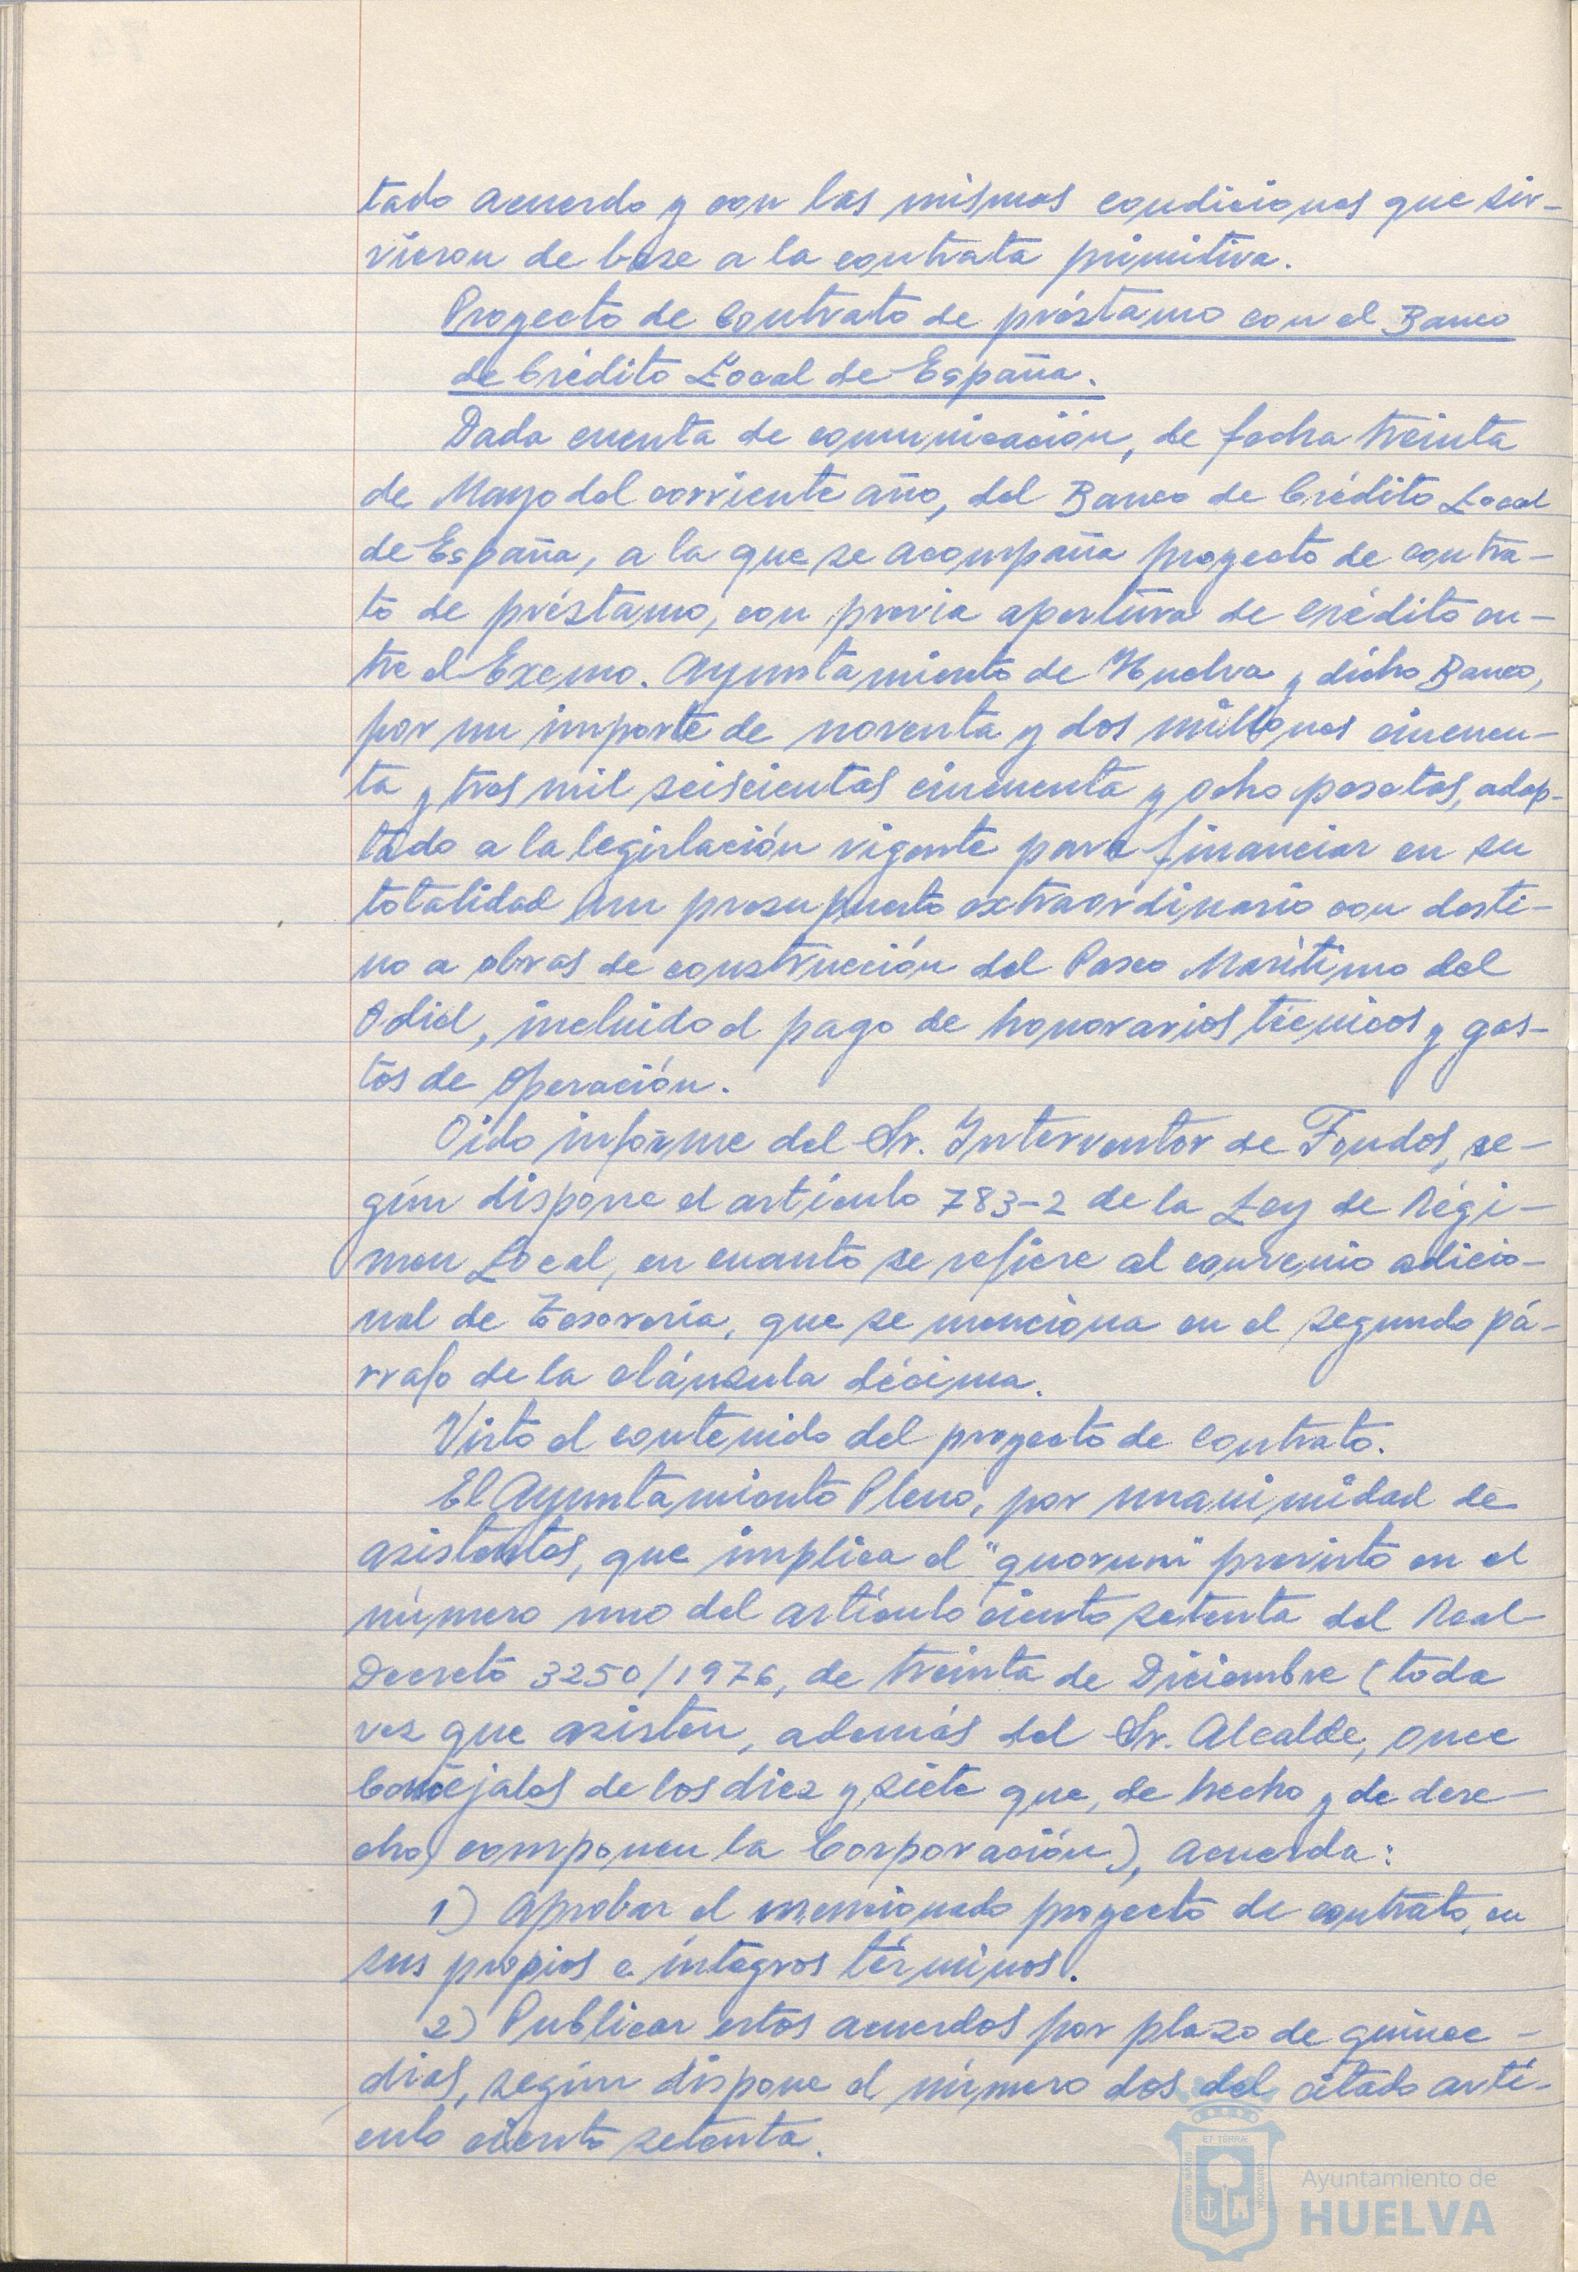 tado acuerdo y con las mismas condiciones que sir-
vieron de base a la contrata primitiva.
Proyecto de contrato de préstamo con el Banco
de Crédito Local de España.
Dada cuenta de comunicación, de fecha treinta
de Mayo del corriente año, del Banco de Crédito Local
de España, a la que se acompaña proyecto de contra-
to de préstamo, con previa apertura de crédito en-
tre el Excmo. Ayuntamiento de Huelva y dicho Banco,
por un importe de noventa y dos millones cincuen-
ta y tres mil seiscientas cincuenta y ocho pesetas, adap-
tado a la legislación vigente para financiar en su
totalidad un presupuesto extraordinario con desti-
no a obras de construcción del Paseo Marítimo del
Odiel, incluido el pago de honorarios técnicos y gas-
tos de operación.
Oído informe del Sr. Interventor de Fondos, se-
gún dispone el artículo 783-2 de la Ley de Régi-
men Local, en cuanto se refiere al convenio adicio-
nal de Tesorería, que se menciona en el segundo pá-
rrafo de la cláusula décima.
Visto el contenido del proyecto de contrato.
El Ayuntamiento Pleno, por unanimidad de
asistentes, que implica el "quorum" previsto en el
número uno del artículo ciento setenta del Real
Decreto 3250/1976, de treinta de Diciembre (toda
vez que asisten, además del Sr. Alcalde, once
Concejales de los diez y siete que, de hecho y de dere-
cho, componen la Corporación), acuerda:
1) Aprobar el mencionado proyecto de contrato, en
sus propios e íntegros términos.
2) Publicar estos acuerdos por plazo de quince -
días, según dispone el número dos del citado artí-
culo ciento setenta.
ET TERRAE
PORTUS MARIS
CUSTODIA
Ayuntamiento de
HUELVA